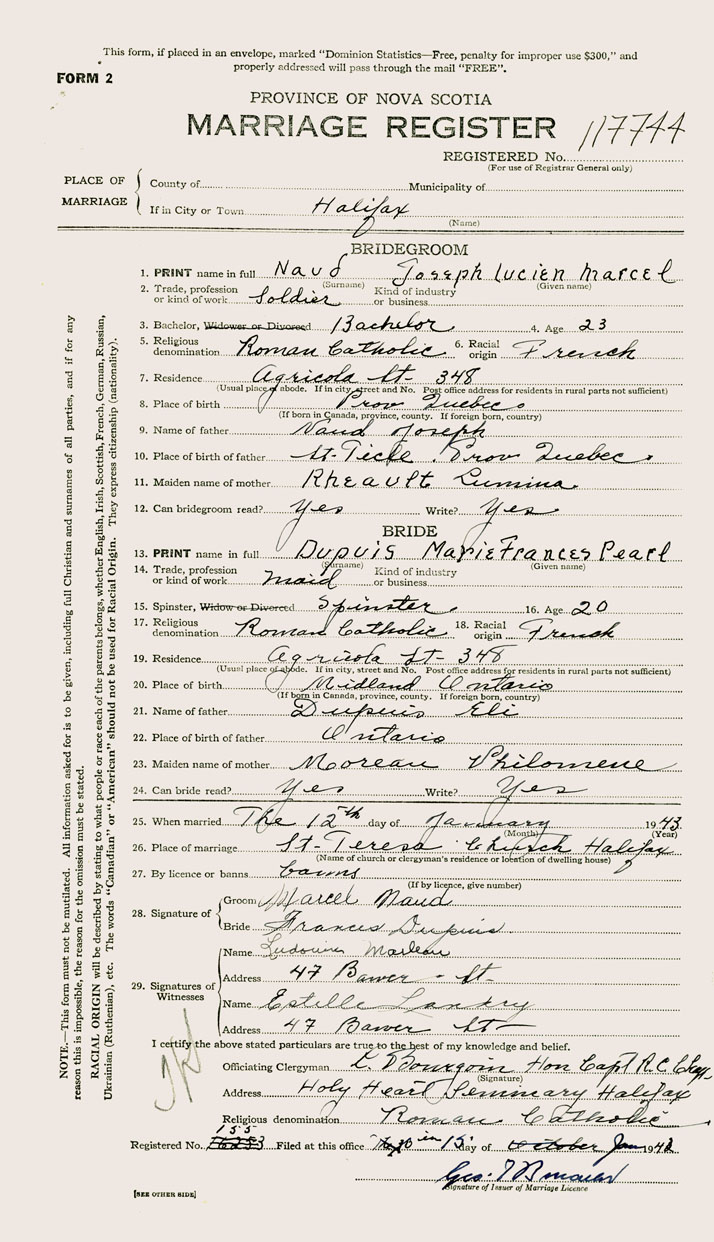 This form, if placed in an envelope, marked "Dominion Statistics—Free, penalty for improper use $300," and
properly addressed will pass through the mail "FREE".
FORM 2
PROVINCE OF NOVA SCOTIA
MARRIAGE REGISTER 117744
REGISTERED No.
(For use of Registrar General only)
PLACE OF MARRIAGE
County of Municipality of
If in City or Town Halifax
(Name)
BRIDEGROOM
1. PRINT name in full Naud Joseph Lucien Marcel
(Surname) (Given name)
2. Trade, profession or kind of work Soldier Kind of industry or business
3. Bachelor, Widower or Divorced Bachelor 4. Age 23
5. Religious denomination Roman Catholic 6. Racial origin French
7. Residence Agricola St- 348
(Usual place of abode. If in city, street and No. Post office address for residents in rural parts not sufficient)
8. Place of birth Prov Quebec
(If born in Canada, province, county. If foreign born, country)
9. Name of father Naud Joseph
10. Place of birth of father St-Ticle Prov Quebec
11. Maiden name of mother Rheault Lumina
12. Can bridegroom read? Yes Write? Yes
BRIDE
13. PRINT name in full Dupuis Marie Frances Pearl
(Surname) (Given name)
14. Trade, profession or kind of work maid Kind of industry or business
15. Spinster, Widow or Divorced Spinster 16. Age 20
17. Religious denomination Roman Catholic 18. Racial origin French
19. Residence Agricola St- 348
(Usual place of abode. If in city, street and No. Post office address for residents in rural parts not sufficient)
20. Place of birth Midland Ontario
(If born in Canada, province, county. If foreign born, country)
21. Name of father Dupuis Eli
22. Place of birth of father Ontario
23. Maiden name of mother Moreau Philomene
24. Can bride read? Yes Write? Yes
25. When married The 12th day of January 1943
(Month) (Year)
26. Place of marriage St-Teresa Church Halifax
(Name of church or clergyman's residence or location of dwelling house)
27. By licence or banns banns
(If by licence, give number)
28. Signature of
Groom Marcel Naud
Bride Frances Dupuis
29. Signatures of Witnesses
Name
Address 47 Bawer - St-
Name Estelle Landry
Address 47 Bawer St-
I certify the above stated particulars are true to the best of my knowledge and belief.
Officiating Clergyman L. Bourgoin Hon Capt R.C.
(Signature)
Address Holy Heart Seminary Halifax
Religious denomination Roman Catholic
155
Registered No. Filed at this office in 15 day of October Jan 194
Geo.
Signature of Issuer of Marriage Licence
[SEE OTHER SIDE]
NOTE.—This form must not be mutilated. All information asked for is to be given, including full Christian and surnames of all parties, and if for any
reason this is impossible, the reason for the omission must be stated.
RACIAL ORIGIN will be described by stating to what people or race each of the parents belongs, whether English, Irish, Scottish, French, German, Russian,
Ukrainian (Ruthenian), etc. The words "Canadian" or "American" should not be used for Racial Origin. They express citizenship (nationality).